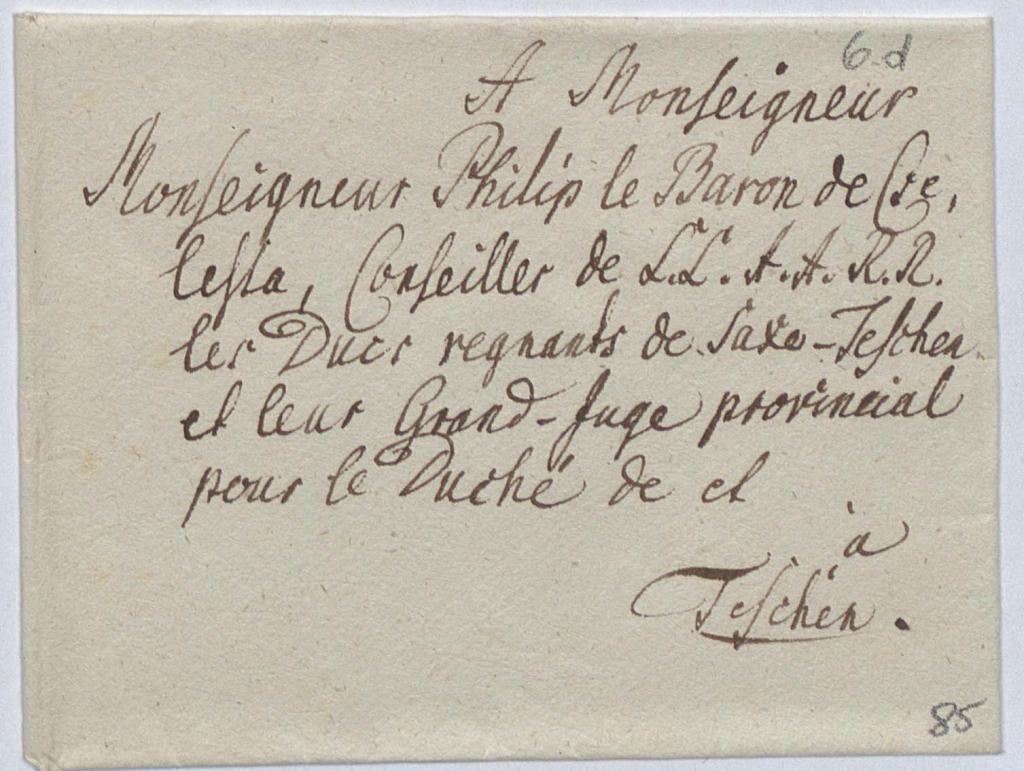 6.d
A Monseigneur
Monseigneur Philip le Baron de Cse,
lesta, Conseiller de L.L. A. A. R. R.
les Ducs regnants de Saxe-Teschen
et leur Grand-Juge provincial
pour le Duché de et
à
Teschen.
85